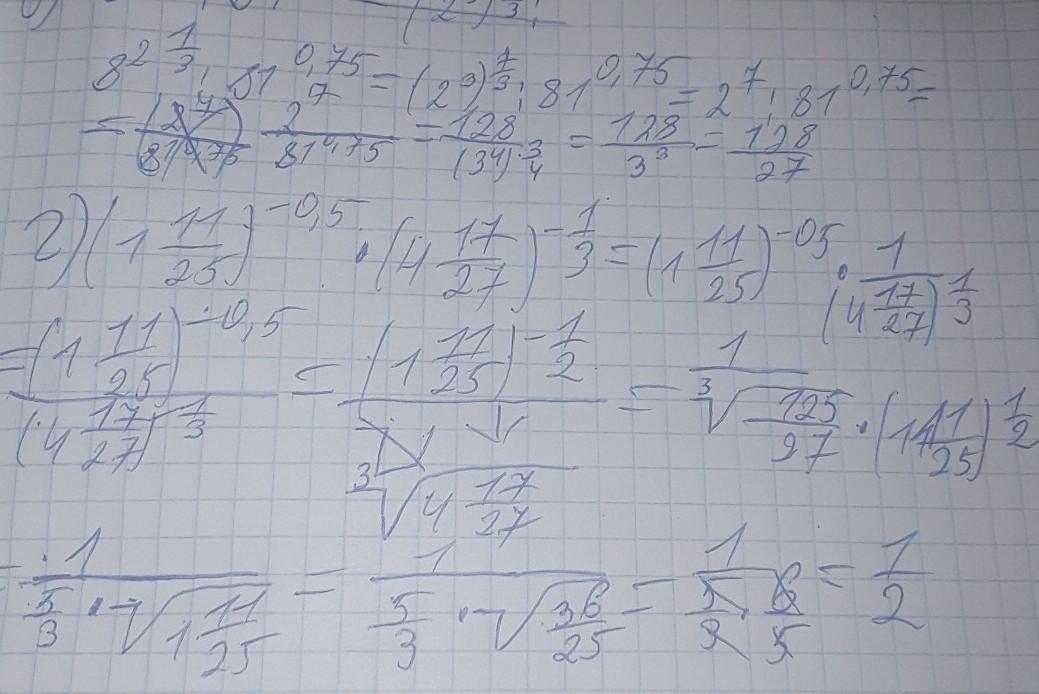 (2³)^3;
8^{2 1/3} : 81^{0,75} = (2³)^{7/3} : 81^{0,75} = 2^7 : 81^{0,75} =
= 2^7/81^{0,75} = 128/(3^4)^{3/4} = 128/3^3 = 128/27
г) (1 11/25)^{-0,5} · (4 17/27)^{-1/3} = (1 11/25)^{-05} · 1/(4 17/27)^{1/3}
= (1 11/25)^{-0,5}/(4 17/27)^{1/3} = (1 11/25)^{-1/2}/∛(4 17/27) = 1/(∛(125/27) · (1 11/25)^{1/2})
= 1/(5/3 · √(1 11/25)) = 1/(5/3 · √(36/25)) = 1/(5/3 · 6/5) = 1/2